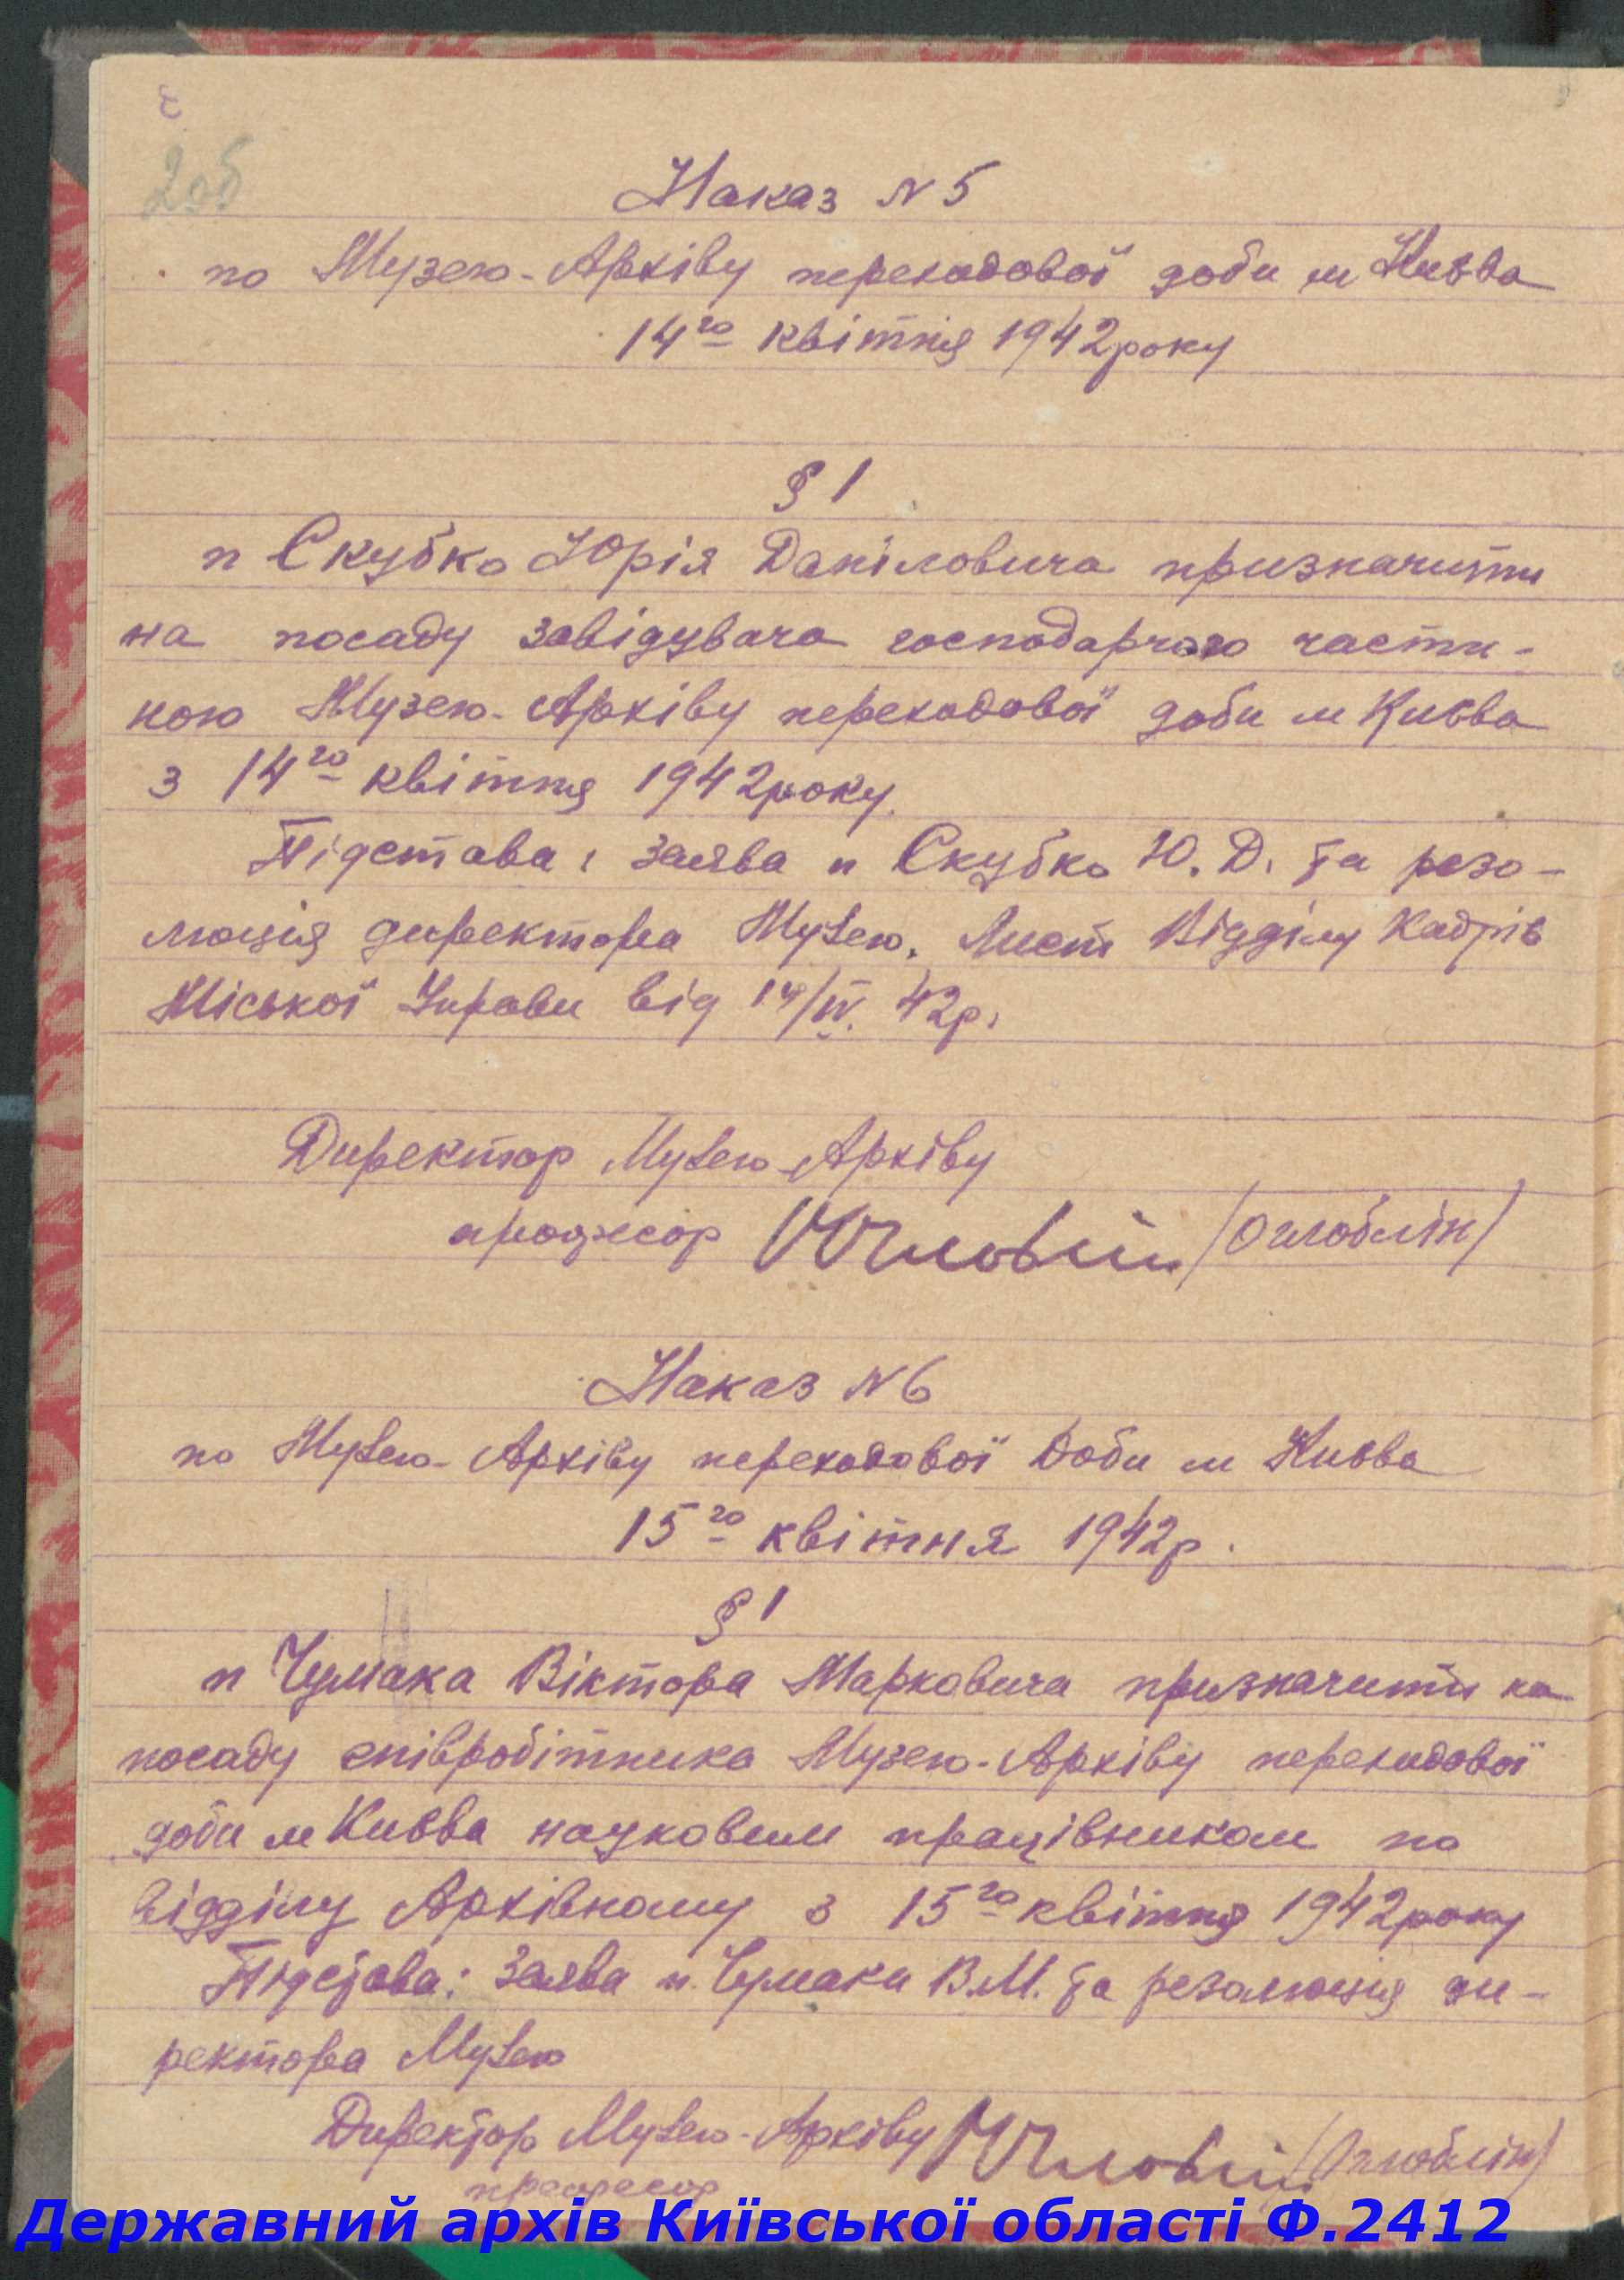 2об
Наказ N 5
по Музею-Архіву переходової доби м Києва
14го квітня 1942року
§ 1
п Скубко Юрія Даніловича призначити
на посаду завідувача господарчою части-
ною Музею-Архіву переходової доби м Києва
з 14го квітня 1942року.
Підстава: заява п Скубко Ю. Д. та резо-
люція директора Музею. Лист Відділу Кадрів
Міської Управи від 14/IV. 42р.
Директор Музею-Архіву
професор /Оглоблін/
Наказ N 6
по Музею-Архіву переходової доби м Києва
15го квітня 1942р.
§ 1
п Чумака Віктора Марковича призначити на
посаду співробітника Музею-Архіву переходової
доби м Києва науковим працівником по
відділу Архівному з 15го квітня 1942року
Підстава: Заява п. Чумака В.М. та резолюція ди-
ректора Музею
Директор Музею-Архіву /Оглоблін/
професор
Державний архів Київської області Ф.2412